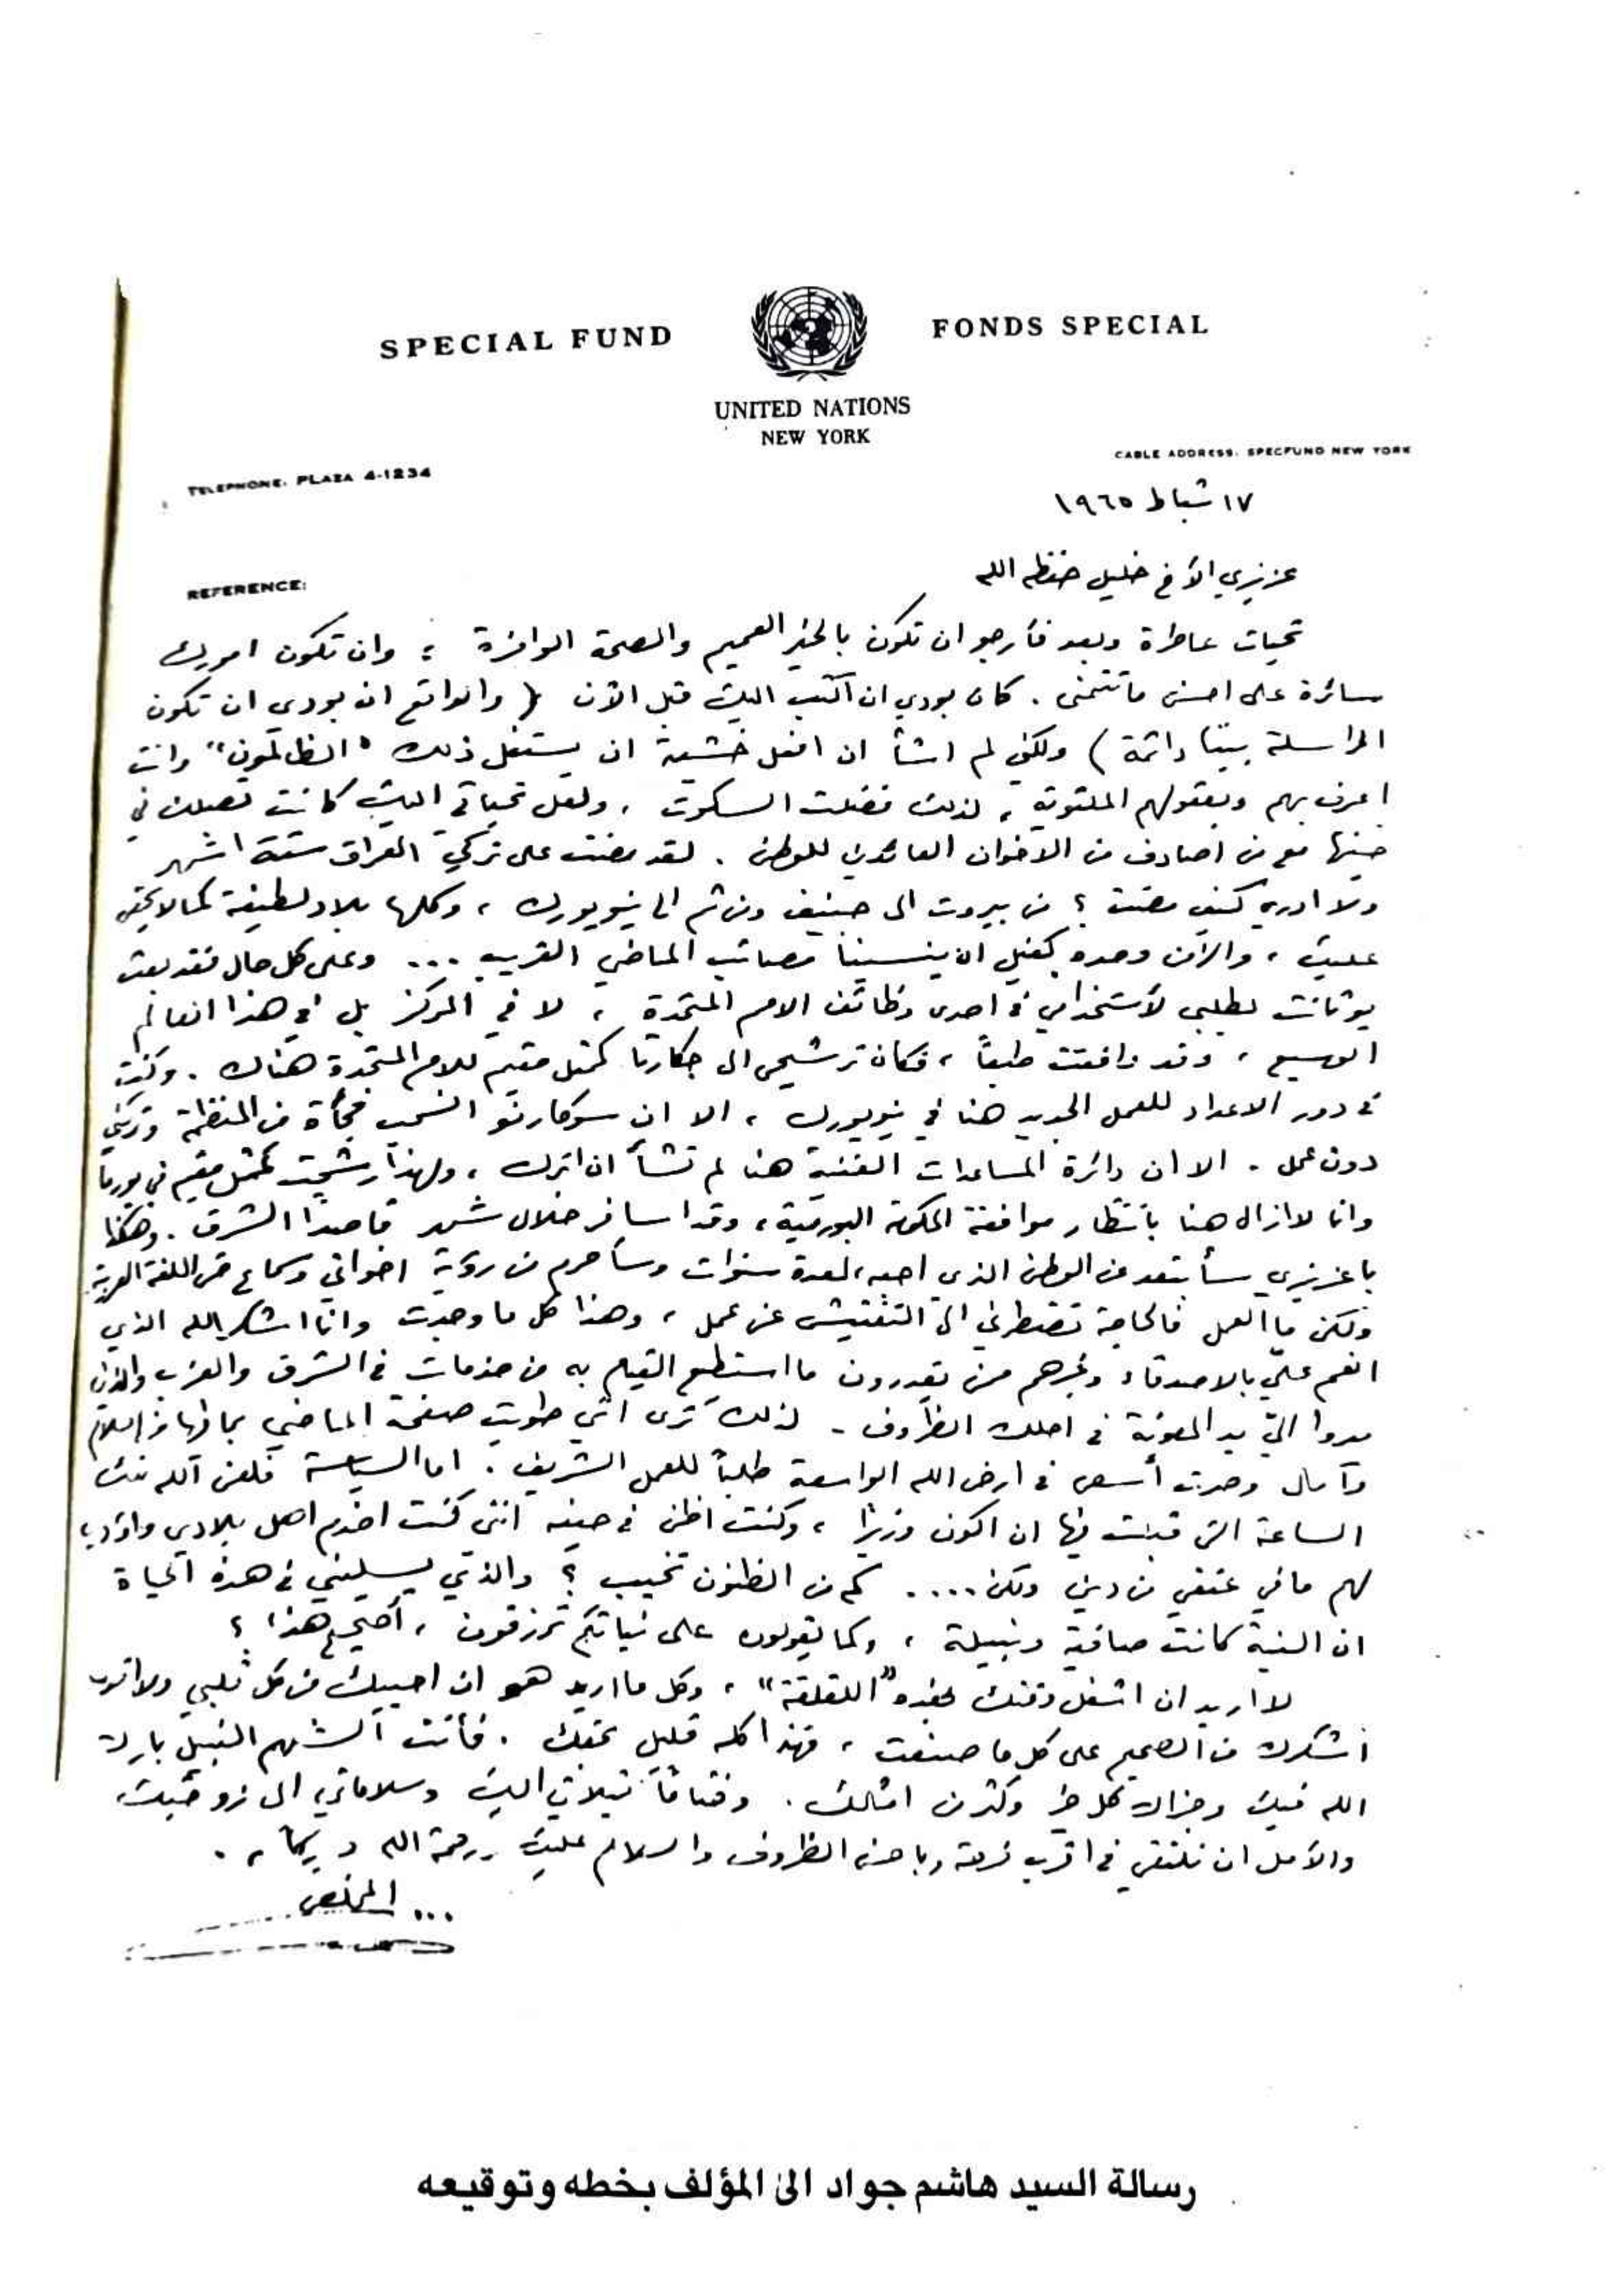 SPECIAL FUND
FONDS SPECIAL
UNITED NATIONS
NEW YORK
CABLE ADDRESS: SPECFUND NEW YORK
TELEPHONE: PLAZA 4-1234
١٧ شباط ١٩٦٥
REFERENCE:
عزيزي الأخ خليل حفظه الله
تحيات عاطرة وبعد فأرجو ان تكون بالخير العميم والصحة الوافرة ، وان تكون امورك
سائرة على احسن ما تتمنى . كان بودي ان اكتب اليك قبل الآن ( والواقع ان بودي ان تكون
المراسلة بيننا دائمة ) ولكني لم اشأ ان افعل خشية ان يستغل ذلك "الظالمون" وانت
اعرف بهم وبعقولهم الملتوية ، لذلك فضلت السكوت ، ولعل تحياتي اليك كانت تصلك في
حينها مع من اصادف من الاخوان العائدين للوطن . لقد مضت على تركي العراق ستة اشهر
ولا ادري كيف مضت ؟ من بيروت الى جنيف ومن ثم الى نيويورك ، وكلها بلاد لطيفة كما لا يخفى
عليك ، والزمن وحده كفيل ان ينسينا مصائب الماضي القريب ... وعلى كل حال فقد بعث
يوثانت بطلبي لأستخدامي في احدى وظائف الامم المتحدة ، لا في المركز بل في هذا العالم
الوسيع ، وقد وافقت طبعاً ، فكان ترشيحي الى جكارتا كممثل مقيم للامم المتحدة هناك . وكنت
في دور الاعداد للعمل الجديد هنا في نيويورك ، الا ان سوكارنو انسحب فجأة من المنظمة وتركني
دون عمل . الا ان دائرة المساعدات الفنية هنا لم تشأ ان اترك ، ولهذا رشحت كممثل مقيم في بورما
وانا لا ازال هنا بانتظار موافقة الحكومة البورمية ، وقد اسافر خلال شهر قاصداً الشرق . وهكذا
يا عزيزي سأبتعد عن الوطن الذي احبه ، لعدة سنوات وسأحرم من رؤية اخواني وسماع حتى اللغة العربية
ولكن ما العمل فالحاجة تضطرني الى التفتيش عن عمل ، وهذا كل ما وجدت وانا اشكر الله الذي
انعم علي بالاصدقاء وغيرهم ممن يقدرون ما استطيع القيام به من خدمات في الشرق والغرب والذين
مدوا الي يد المعونة في احلك الظروف . لذلك ترى اني طويت صفحة الماضي بما فيها من
وآمال وصرت أسعى في ارض الله الواسعة طلباً للعمل الشريف . اما السياسة فلعن الله تلك
الساعة التي قبلت فيها ان اكون وزيراً ، وكنت اظن في حينه انني كنت اخدم اهل بلادي واؤدي
لهم ما في عنقي من دين ولكن .... كم من الظنون تخيب ؟ والذي يسليني في هذه الحياة
ان النية كانت صافية ونبيلة ، وكما يقولون على نياتكم ترزقون ، أصحيح هذا ؟
لا اريد ان اشغل وقتك بهذه "اللقلقة" ، وكل ما اريد هو ان احييك من كل قلبي ولا
اشكرك من الصميم على كل ما صنعت ، فهذا كله قليل بحقك . فأنت الشهم النبيل بارك
الله فيك وجزاك كل خير وكثر من امثالك . وختاماً قبلاتي اليك وسلاماتي الى زوجتك
والأمل ان نلتقي في اقرب فرصة وباحسن الظروف والسلام عليك ورحمة الله وبركاته .
المخلص
رسالة السيد هاشم جواد الى المؤلف بخطه وتوقيعه